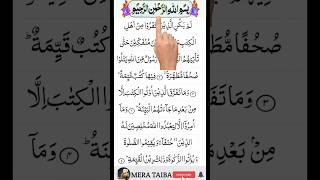 بِسْمِ اللّٰهِ الرَّحْمٰنِ الرَّحِيْمِ
لَمْ يَكُنِ الَّذِيْنَ كَفَرُوْا مِنْ اَهْلِ
الْكِتٰبِ مُنْفَكِّيْنَ حَتّٰى
تَاْتِيَهُمُ رَسُوْلٌ مِّنَ اللّٰهِ يَتْلُوْا
صُحُفًا مُّطَهَّرَةً ۙ فِيْهَا كُتُبٌ قَيِّمَةٌ ؕ
۳ وَمَا تَفَرَّقَ الَّذِيْنَ اُوْتُوا الْكِتٰبَ اِلَّا
مِنْۢ بَعْدِ مَا جَآءَتْهُمُ الْبَيِّنَةُ ؕ ۴ وَمَآ
اُمِرُوْٓا اِلَّا لِيَعْبُدُوا اللّٰهَ مُخْلِصِيْنَ لَهُ
الدِّيْنَ ۙ حُنَفَآءَ وَيُقِيْمُوا الصَّلٰوةَ
وَيُؤْتُوا الزَّكٰوةَ وَذٰلِكَ دِيْنُ الْقَيِّمَةِ ؕ
MERA TAIBA